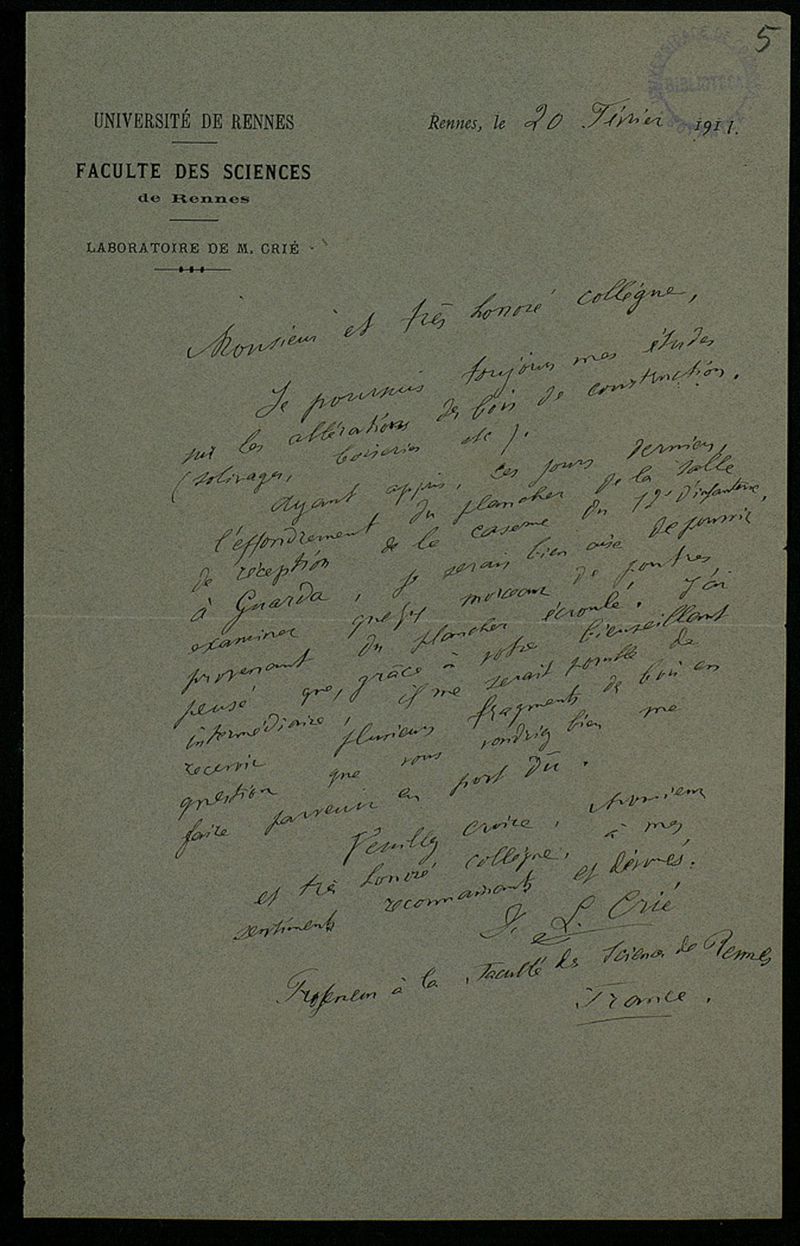 5
UNIVERSITÉ DE RENNES
FACULTE DES SCIENCES
de Rennes
LABORATOIRE DE M. CRIÉ
BIBLIOTECA
Rennes, le 20 Février 1911.
Monsieur et très honoré collègue,
Je poursuis toujours mes études
sur les altérations des bois de construction.
(solivages, boiseries etc).
Ayant appris, ces jours derniers,
l'effondrement du plancher de la salle
de réception de la caserne du 12e d'infanterie,
à Guarda, je serais bien aise de pouvoir
examiner quelqs morceaux de poutres
provenant du plancher écroulé. J'ai
pensé que, grâce à votre bienveillant
intermédiaire, il me serait possible de
recevoir plusieurs fragments de bois en
question que vous voudriez bien me
faire parvenir en port dû.
Veuillez croire, Monsieur
et très honoré collègue, à mes
sentiments reconnaissants et dévoués.
L. Crié
Professeur à la Faculté des Sciences de Rennes
France.